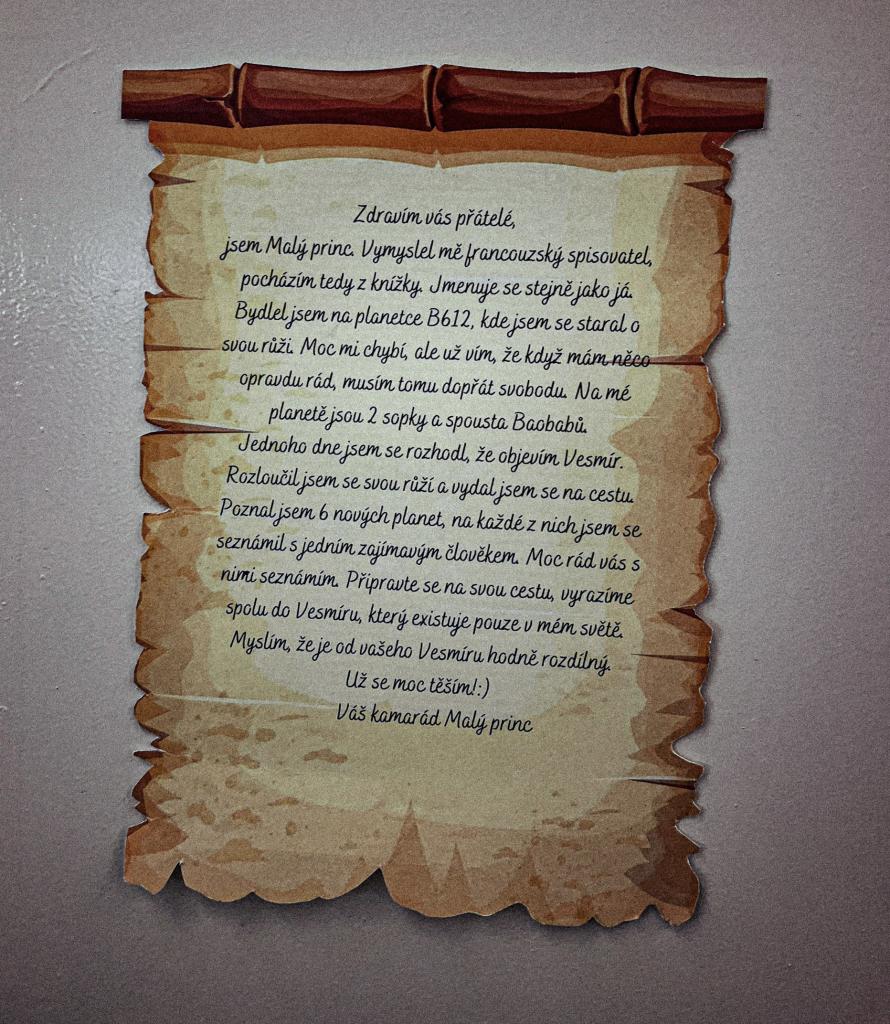 Zdravím vás přátelé,
jsem Malý princ. Vymyslel mě francouzský spisovatel,
pocházím tedy z knížky. Jmenuje se stejně jako já.
Bydlel jsem na planetce B612, kde jsem se staral o
svou růži. Moc mi chybí, ale už vím, že když mám něco
opravdu rád, musím tomu dopřát svobodu. Na mé
planetě jsou 2 sopky a spousta Baobabů.
Jednoho dne jsem se rozhodl, že objevím Vesmír.
Rozloučil jsem se svou růží a vydal jsem se na cestu.
Poznal jsem 6 nových planet, na každé z nich jsem se
seznámil s jedním zajímavým člověkem. Moc rád vás s
nimi seznámím. Připravte se na svou cestu, vyrazíme
spolu do Vesmíru, který existuje pouze v mém světě.
Myslím, že je od vašeho Vesmíru hodně rozdílný.
Už se moc těším!:)
Váš kamarád Malý princ